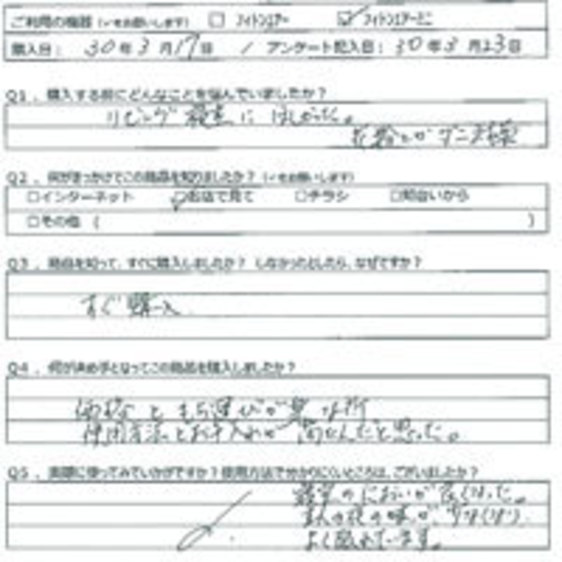 ご利用の機器（✓をお願いします） □ フィトンエアー ☑ フィトンエアーミニ
購入日： 30年3月17日 / アンケート記入日： 30年3月23日
Q1．購入する前にどんなことを悩んでいましたか？
リビング 寝室に ほしかった。
花粉とか ダニ対策
Q2．何がきっかけでこの商品を知りましたか？（✓をお願いします）
□インターネット ☑お店で見て □チラシ □知合いから
□その他（ ）
Q3．商品を知って、すぐに購入しましたか？ しなかったとしたら、なぜですか？
すぐ購入
Q4．何が決め手となってこの商品を購入しましたか？
価格と もち運びが
使用方法とお手入れが かんたんだと思った。
Q5．実際に使ってみていかがですか？使用方法で分かりにくいところは、ございましたか？
寝室のにおいが良くなった。
主人の夜の咳が、
よく眠れています。